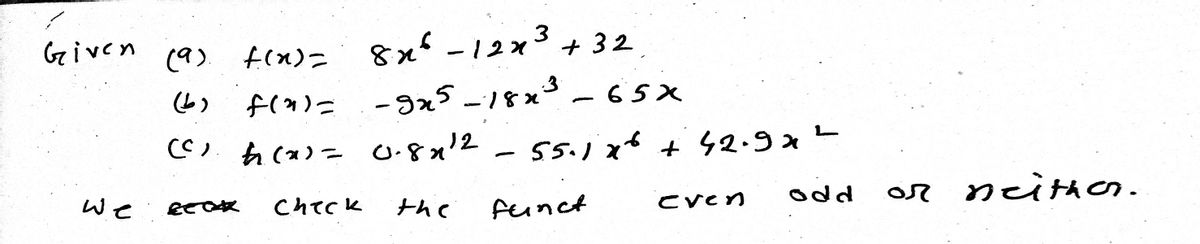 Given (a) f(x) = 8x⁶ - 12x³ + 32.
(b) f(x) = -9x⁵ - 18x³ - 65x
(c) h(x) = 0.8x¹² - 55.1x⁶ + 42.9x²
We check the funct even odd or neither.